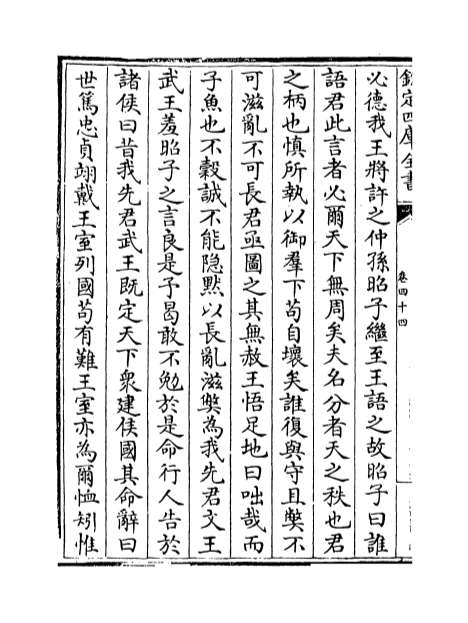 欽定四庫全書
卷四十四
必德我王將許之仲孫昭子繼至王語之故昭子曰誰
語君此言者必爾天下無周矣夫名分者天之秩也君
之柄也慎所執以御羣下茍自壞矣誰復與守且獘不
可滋亂不可長君亟圖之其無赦王悟足地曰咄哉而
子魚也不穀誠不能隠黙以長亂滋獘為我先君文王
武王羞昭子之言良是予曷敢不勉於是命行人告於
諸侯曰昔我先君武王既定天下衆建侯國其命辭曰
世篤忠貞翊戴王室列國茍有難王室亦為爾恤矧惟